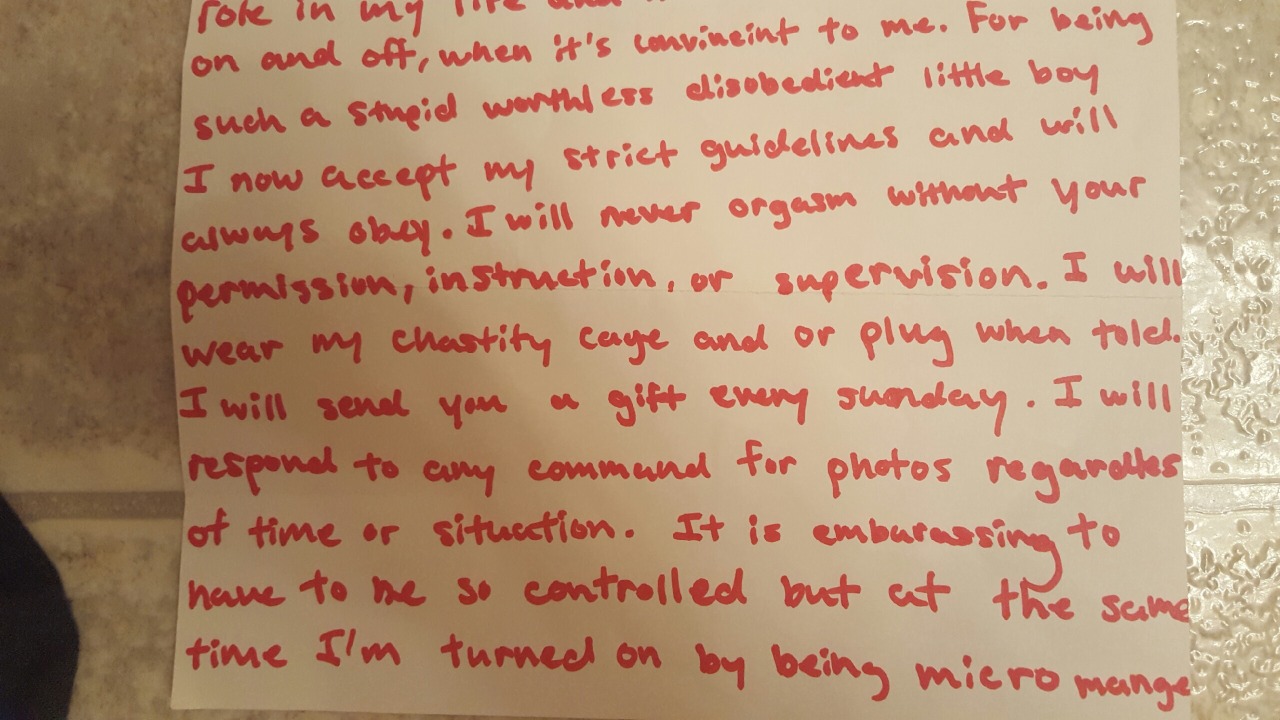 role in my life and
on and off, when it's convineint to me. For being
such a stupid worthless disobedient little boy
I now accept my strict guidelines and will
always obey. I will never orgasm without your
permission, instruction, or supervision. I will
wear my chastity cage and or plug when told.
I will send you a gift every sunday. I will
respond to any command for photos regardles
of time or situation. It is embarassing to
have to be so controlled but at the same
time I'm turned on by being micro mange